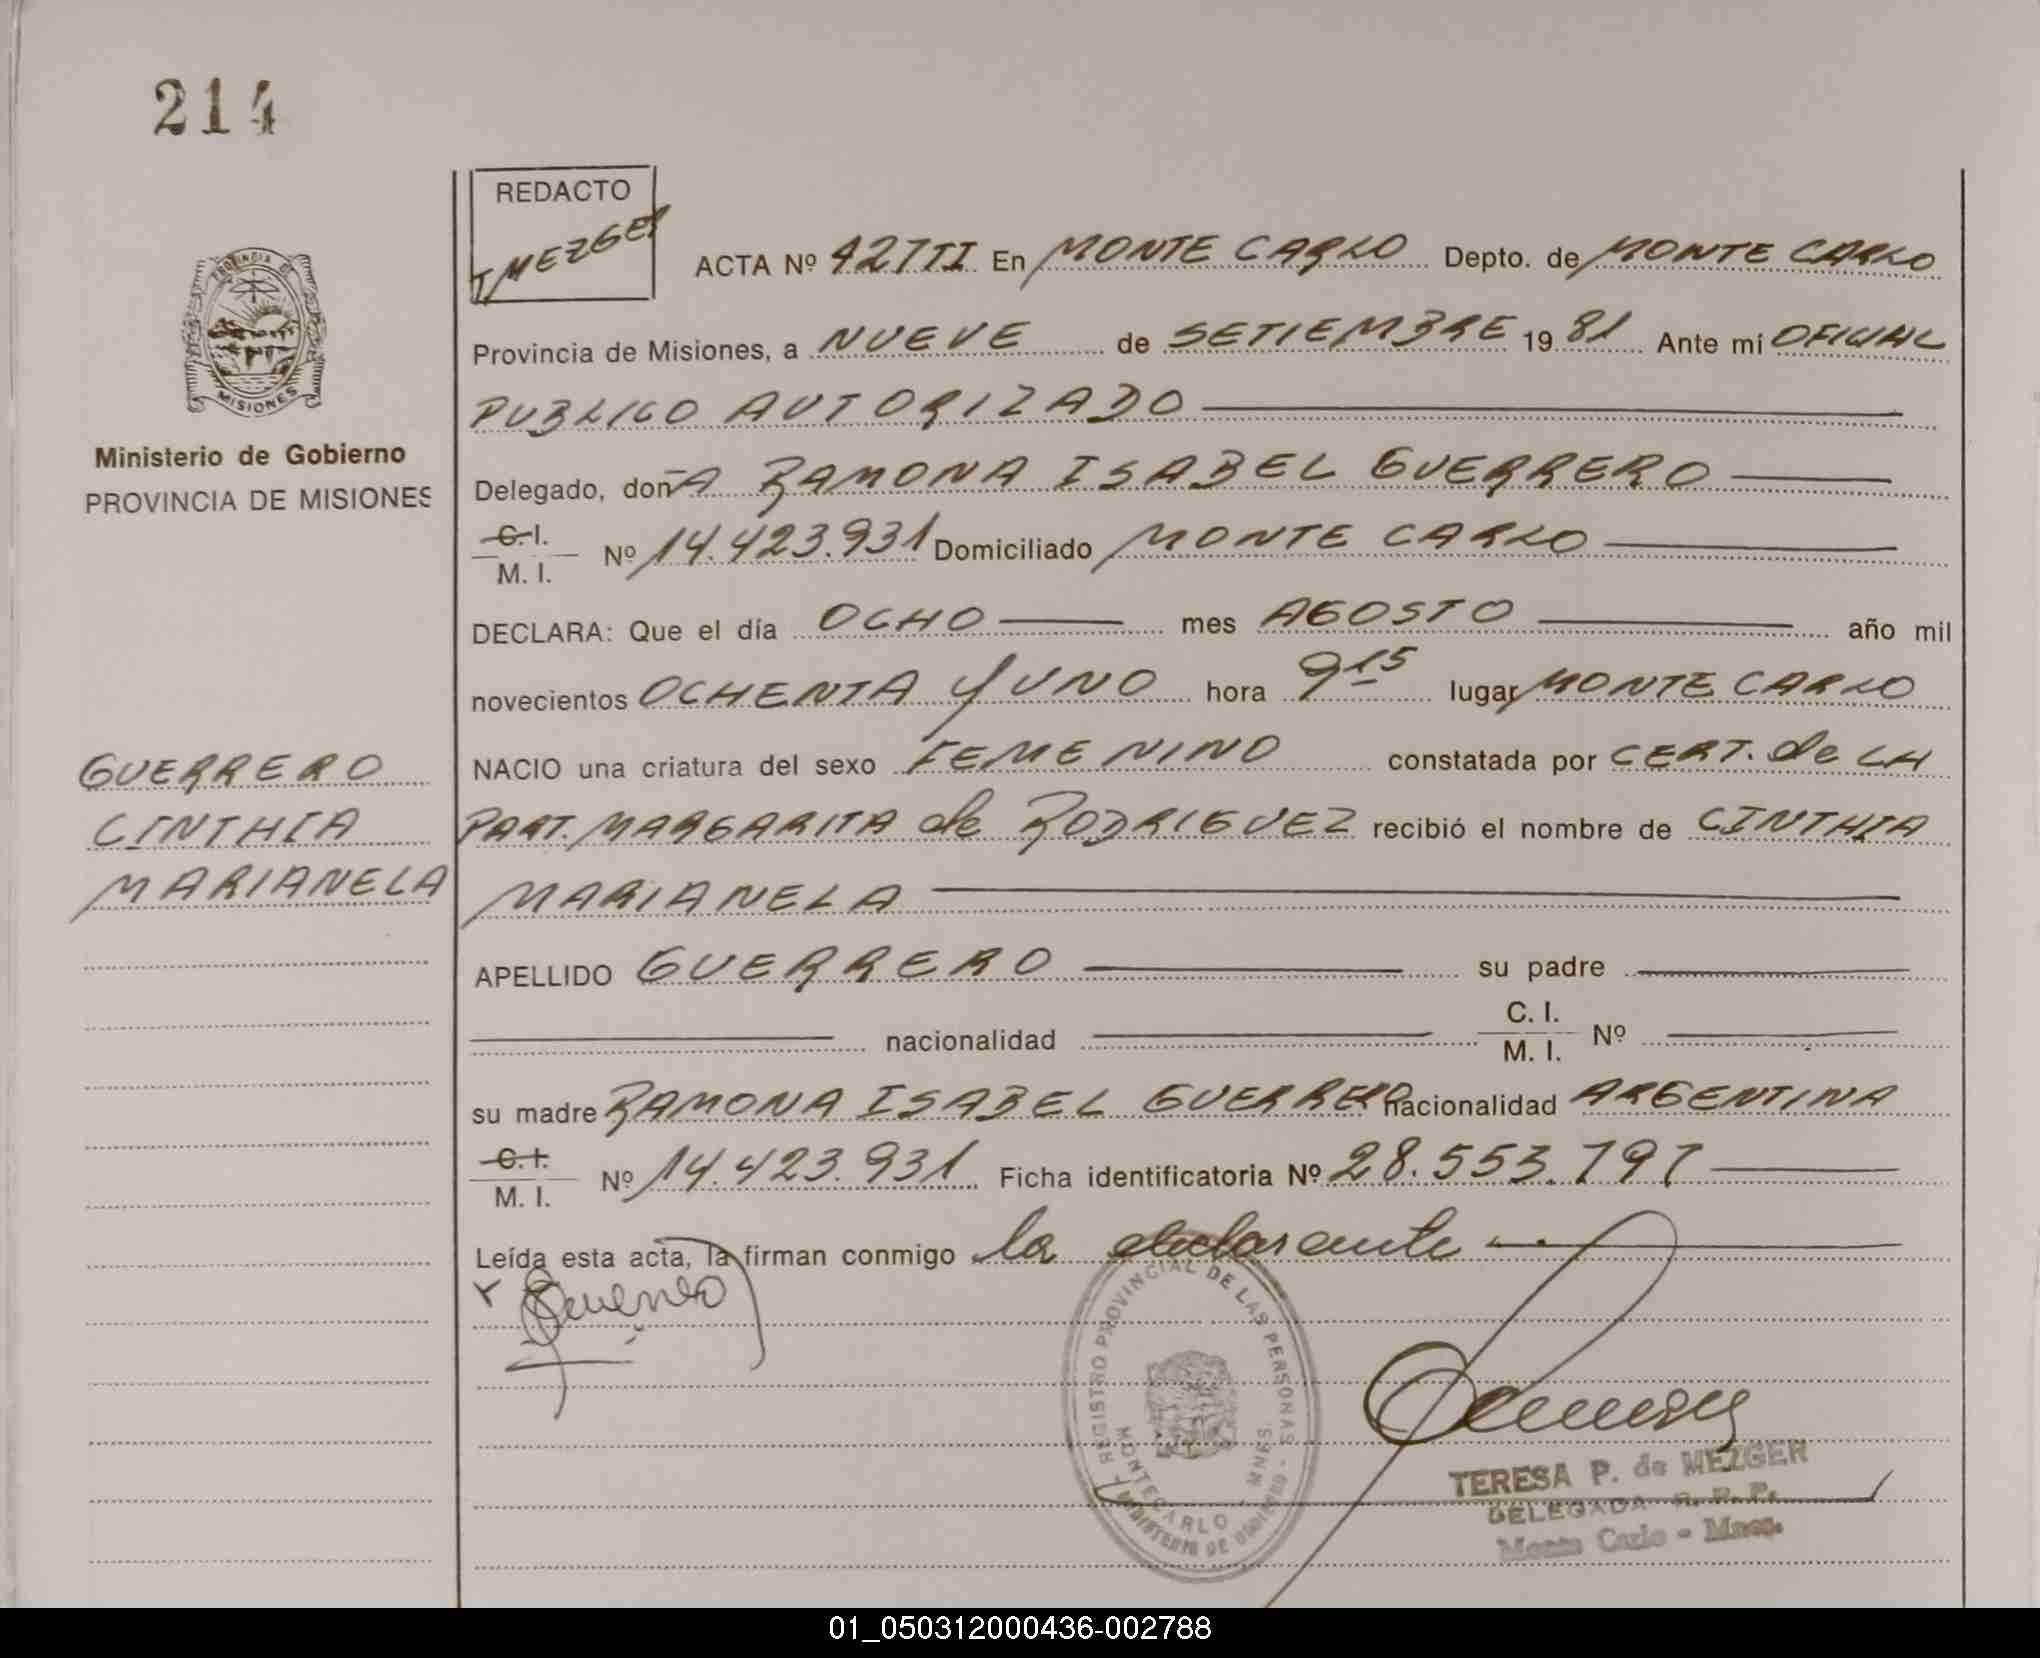 214
REDACTO
T MEZGER
ACTA Nº 427TI En MONTE CARLO Depto. de MONTE CARLO
Provincia de Misiones, a NUEVE de SETIEMBRE 19 81 Ante mí OFICIAL
PUBLICO AUTORIZADO
PROVINCIA DE
MISIONES
Ministerio de Gobierno
PROVINCIA DE MISIONES
Delegado, doñA RAMONA ISABEL GUERRERO
C.I.
M. I. Nº 14.423.931 Domiciliado MONTE CARLO
DECLARA: Que el día OCHO mes AGOSTO año mil
novecientos OCHENTA Y UNO hora 9 15 lugar MONTE CARLO
GUERRERO
CINTHIA
MARIANELA
NACIO una criatura del sexo FEMENINO constatada por CERT. de LA
PART. MARGARITA de RODRIGUEZ recibió el nombre de CINTHIA
MARIANELA
APELLIDO GUERRERO su padre
nacionalidad C. I.
M. I. Nº
su madre RAMONA ISABEL GUERRERO nacionalidad ARGENTINA
C.I.
M. I. Nº 14.423.931 Ficha identificatoria Nº 28.553.797
Leída esta acta, la firman conmigo la declarante
Guerrero
REGISTRO PROVINCIAL DE LAS PERSONAS - MINISTERIO DE GOBIERNO
MONTECARLO - MNES.
TERESA P. de MEZGER
DELEGADA R. P. P.
Monte Carlo - Mnes.
01_050312000436-002788